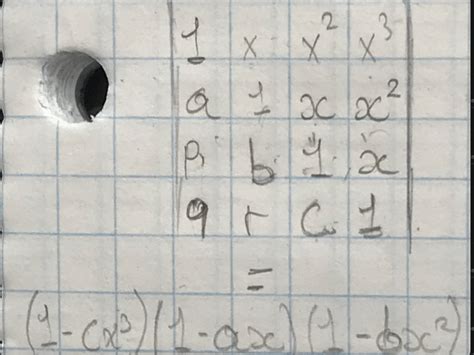 1 x x² x³
a 1 x x²
p b 1 x
q r c 1
=
(1-cx³)(1-ax)(1-bx²)